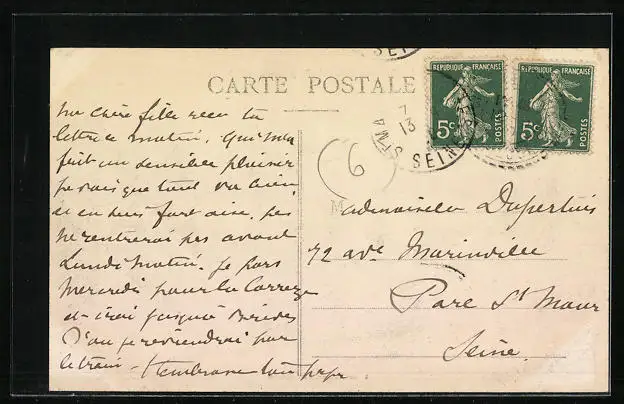 CARTE POSTALE
REPUBLIQUE FRANÇAISE
5c POSTES
REPUBLIQUE FRANÇAISE
5c POSTES
7
13
ST MA
SEINE
6
Ma chère fille reçu ta
lettre ce matin. Qui m'a
fait un sensible plaisir
je vois que tout va bien
et en suis fort aise, je
ne rentrerai pas avant
Lundi matin. Je pars
Mercredi pour la Corrèze
et irai jusqu'à
D'où je reviendrai par
le train - t'embrasse ton
M
Mademoiselle Dupertuis
72 ave Marinville
Parc St Maur
Seine.